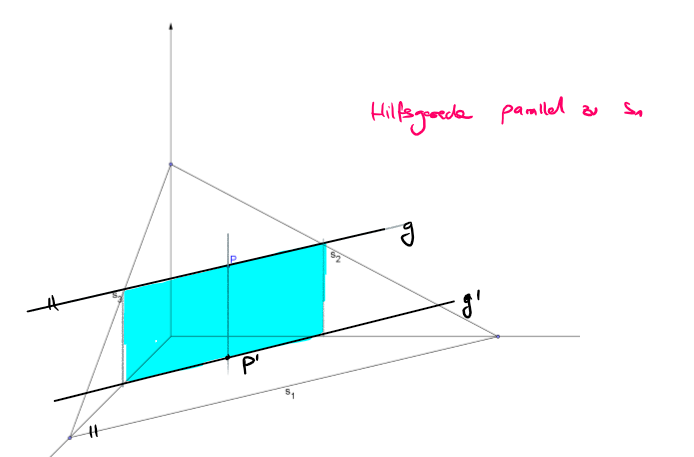 Hilfsgerade parallel zu s₁
g
P
s₂
s₃
g'
P'
s₁